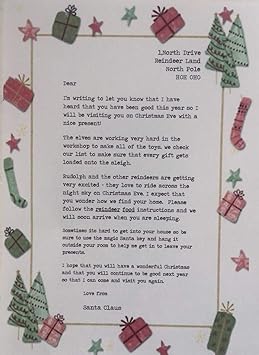 1,North Drive
Reindeer Land
North Pole
HOE OHO
Dear
I'm writing to let you know that I have
heard that you have been good this year so I
will be visiting you on Christmas Eve with a
nice present!
The elves are working very hard in the
workshop to make all of the toys, we check
our list to make sure that every gift gets
loaded onto the sleigh.
Rudolph and the other reindeers are getting
very excited - they love to ride across the
night sky on Christmas Eve. I expect that
you wonder how we find your home. Please
follow the reindeer food instructions and we
will soon arrive when you are sleeping.
Sometimes its hard to get into your house so be
sure to use the magic Santa key and hang it
outside your room to help me get in to leave your
presents.
I hope that you will have a wonderful Christmas
and that you will continue to be good next year
so that I can come and visit you again.
Love from
Santa Claus